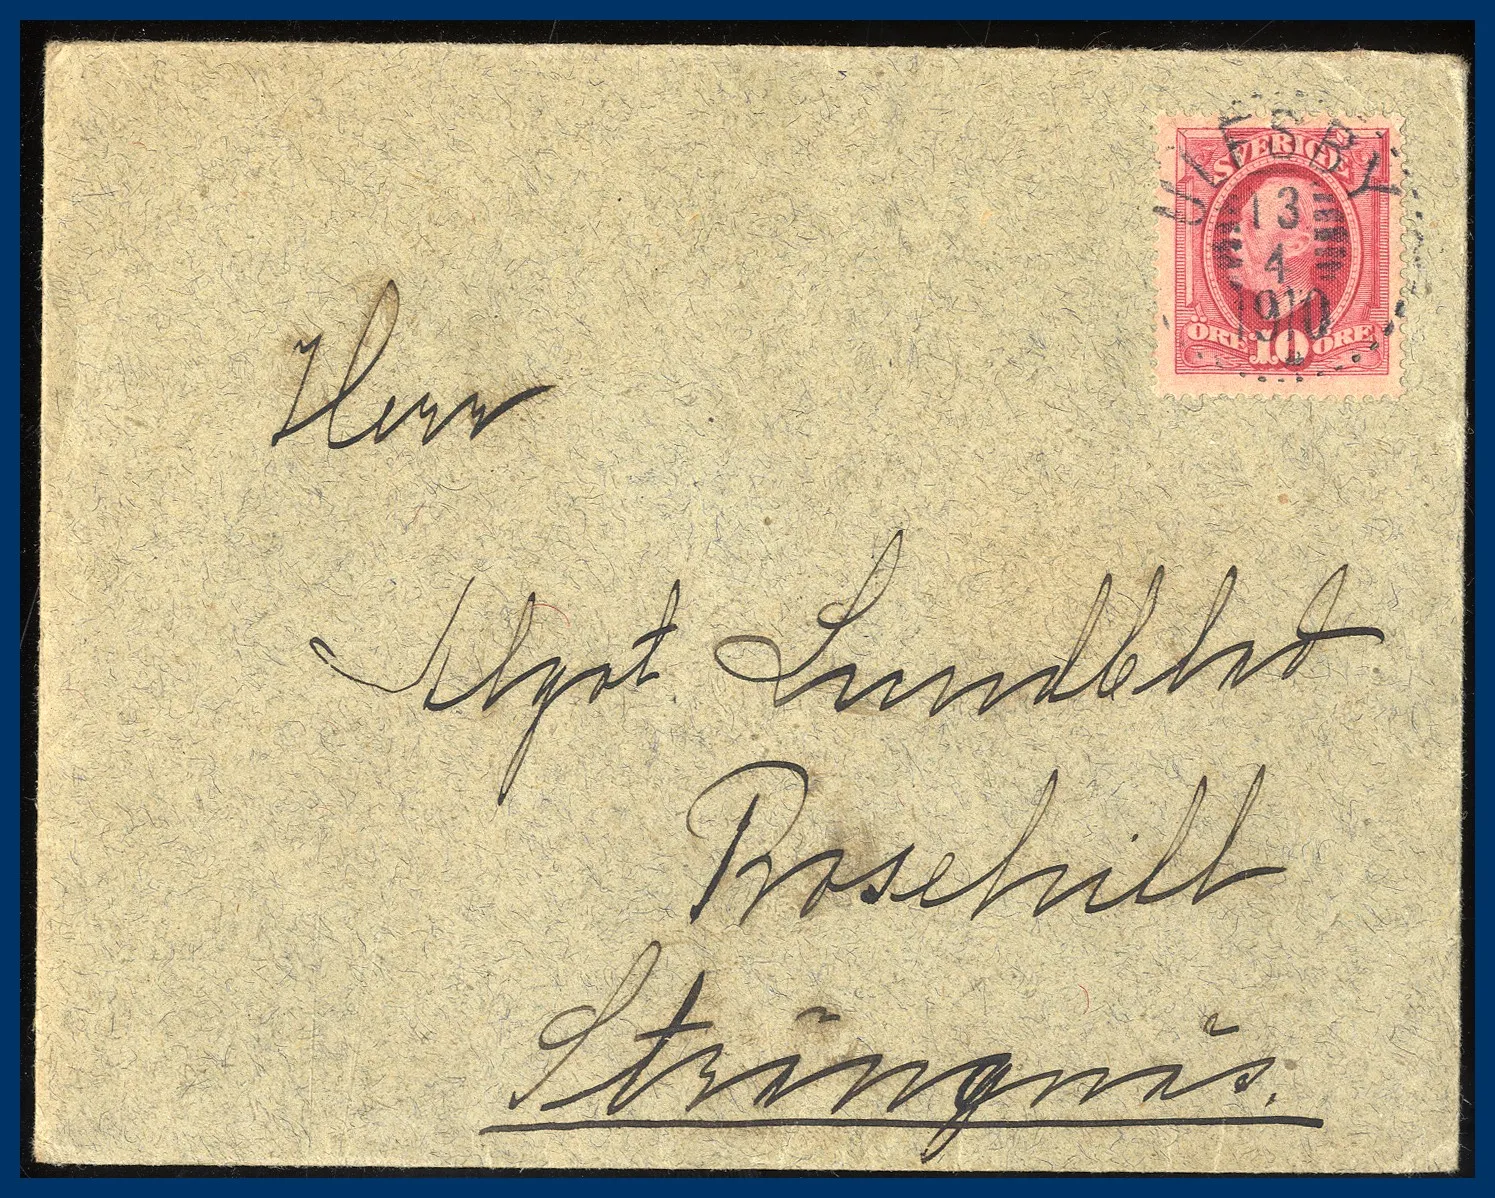 ULFSBY
SVERIGE
13
4
1910
ÖRE 10 ÖRE
Herr
Algot Lundblad
Rosehill
Strängnäs.